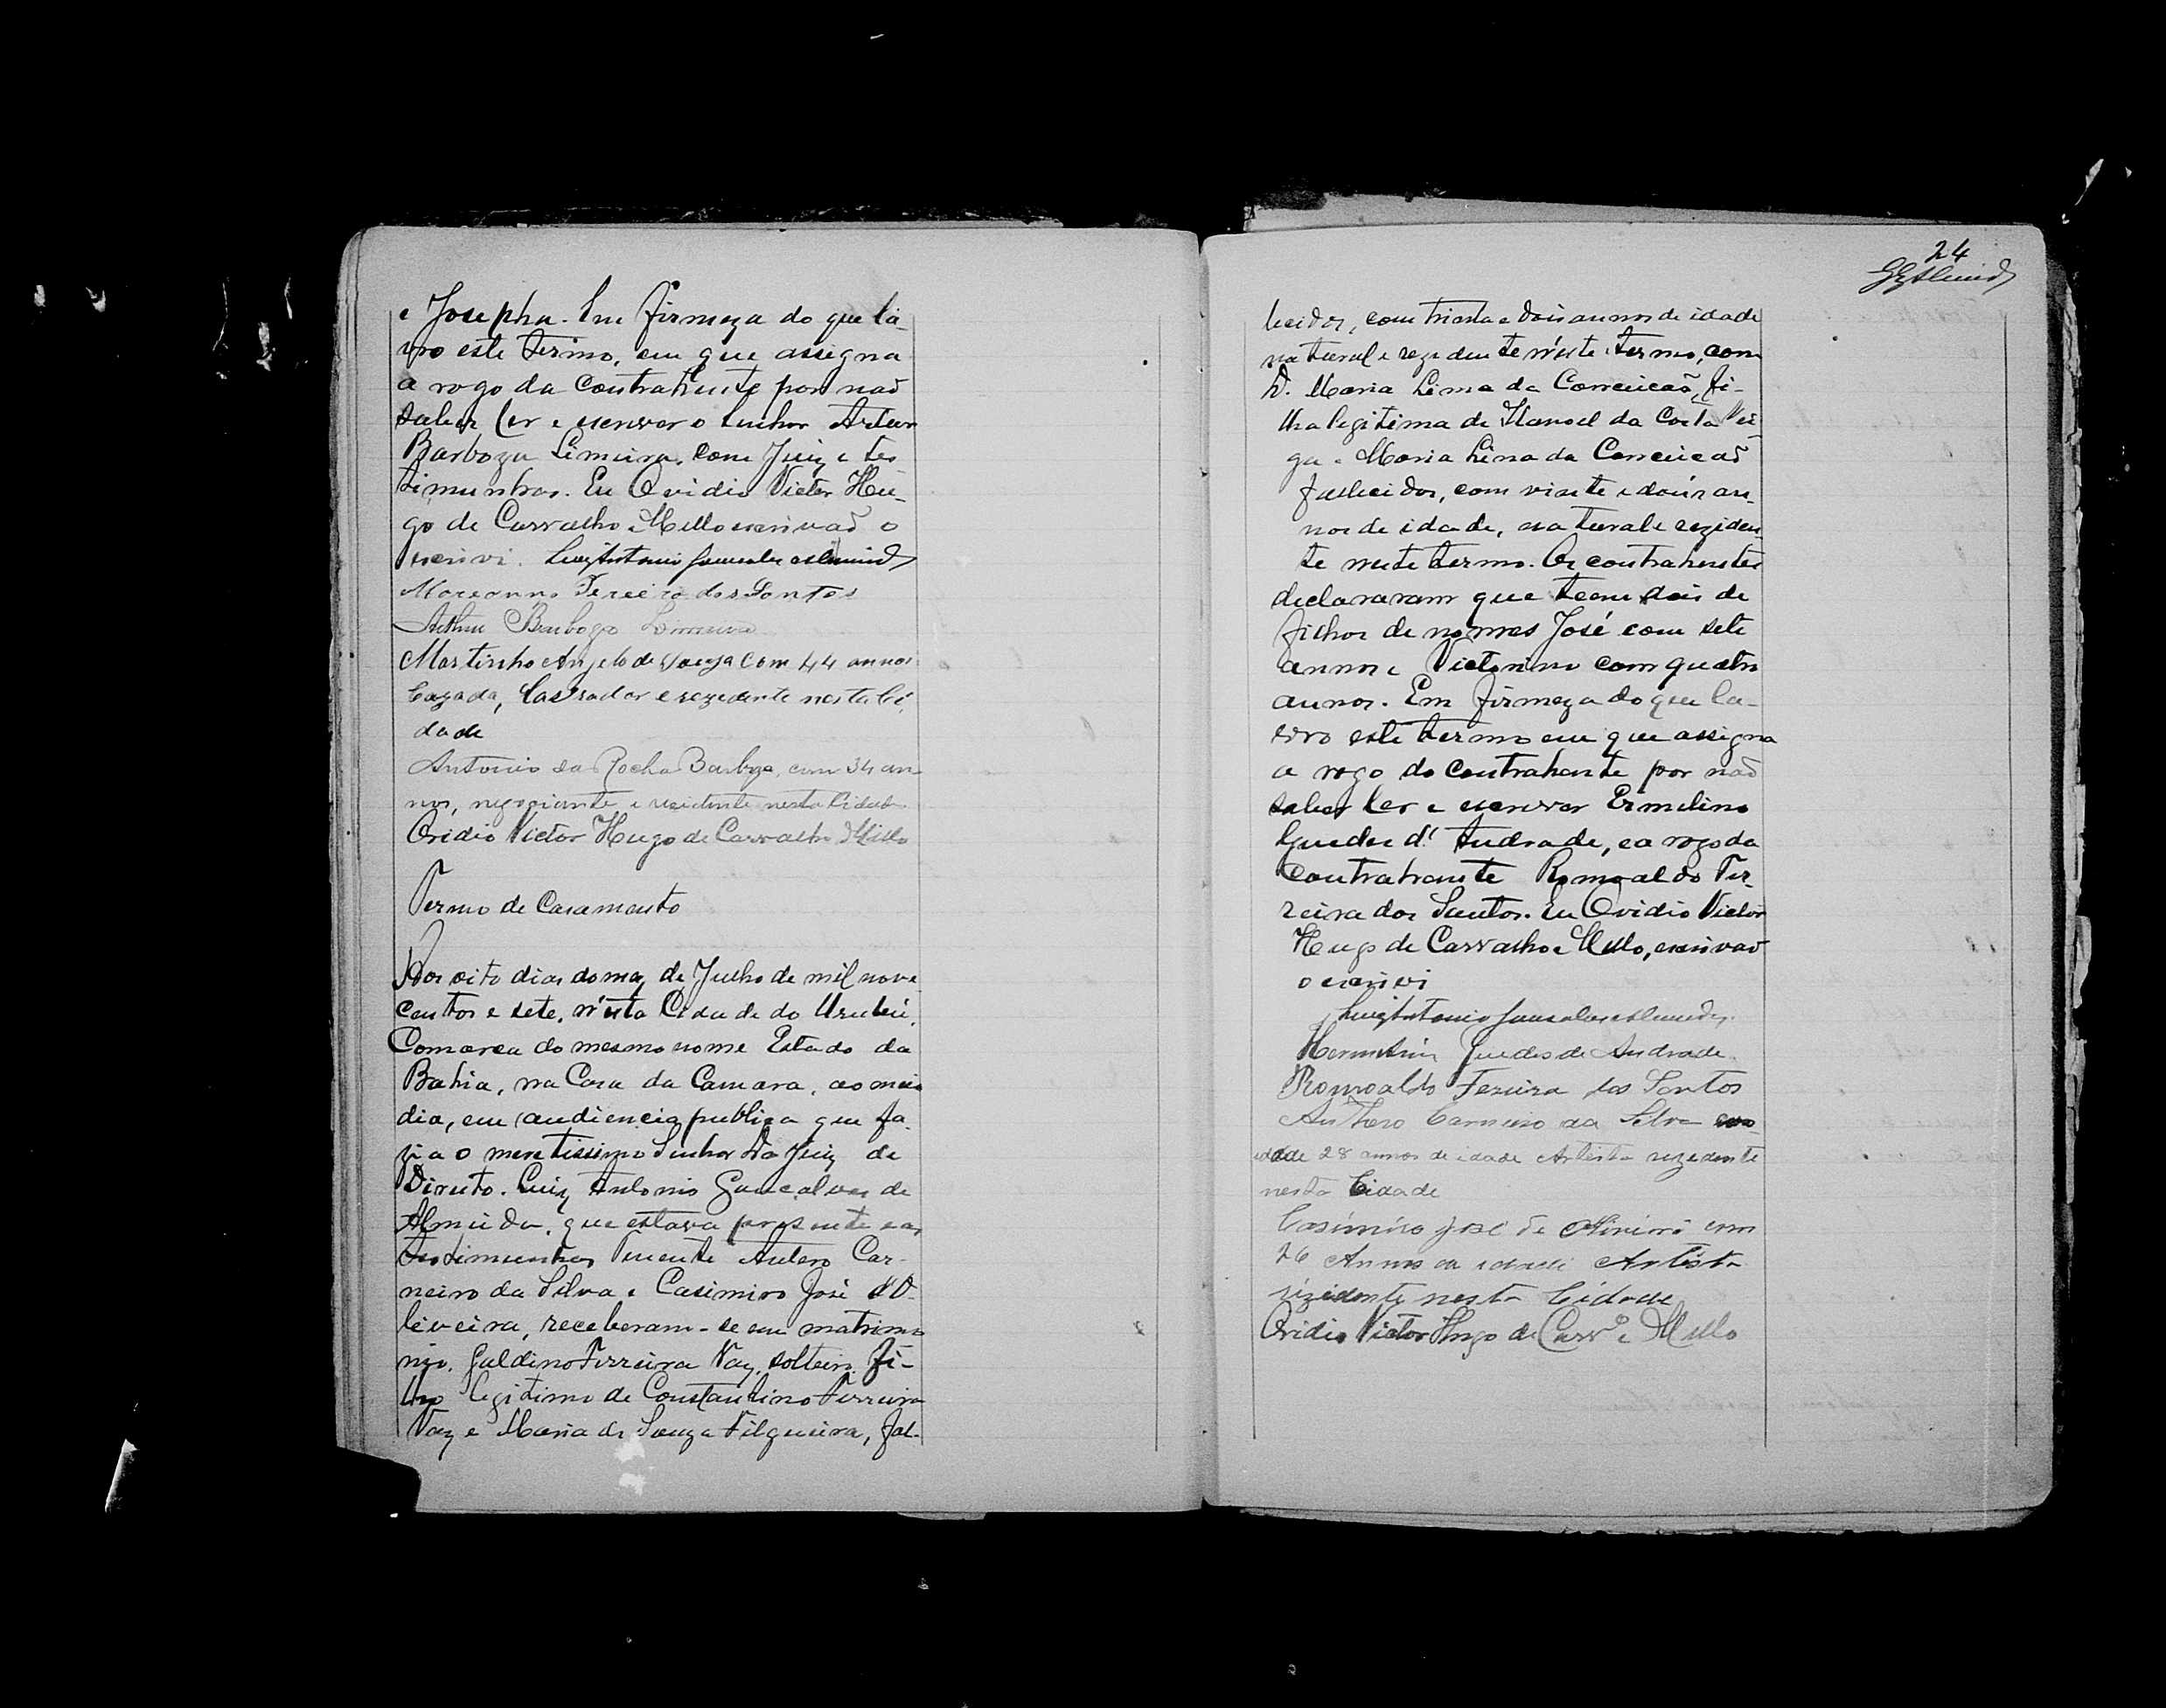 e Josepha. Em firmeza do que la-
vro este termo, em que assigna
a rogo da contrahente por naõ
saber ler e escrever o senhor Artur
Barboza Limeira, com Juiz e tes
timunhas. Eu Ovidio Victor Hu-
go de Carvalho e Mello escrivaõ o
escrivi. Luiz Antonio Gonsalves Almeida
Mareanno Pereira dos Santos
Arthur Barboza Limeira
Martinho Angelo de Souza com 44 annos
Cazada, Lavrador e rezedente nesta Ci
dade
Antonio da Rocha Barboza, com 34 an-
nos, negociante e residente nesta Cidade
Ovidio Victor Hugo de Carvalho e Mello
Termo de Casamento
Aos oito dias do mez de Julho de mil nove
centos e sete, n'esta Cidade do Urubú,
Comarca do mesmo nome Estado da
Bahia, na Casa da Camara, ao meio
dia, em audiencia publica que fa-
zia o meretissimo Senhor Dr Juiz de
Direito. Luiz Antonio Goncalves de
Almeida, que estava presente e as
testimunhas Tenente Antero Car-
neiro da Silva e Casimiro José d'O-
liveira, receberam-se em matrimo
nio. Galdino Ferreira Vaz, solteiro, fi-
lho legitimo de Constantino Ferreira
Vaz e Maria de Souza Filgueira, fal-
24
GGAlmeida
lecidos, com trinta e dois annos de idade
natural e rezidente n'este termo, com
D. Maria Lima da Conceicaõ, fi-
lha legitima de Manoel da Costa Vei
ga e Maria Lima da Conceicaõ
fallecidos, com vinte e dois an-
nos de idade, natural e reziden
te neste termo. Os contrahentes
declararam que teem dois de
filhos de nomes José com sete
annos e Victorino com quatro
annos. Em firmeza do que la-
vro este termo em que assigna
a rogo do contrahente por naõ
saber ler e escrever Ermelino
Guedes d'Andrade, e a rogo da
contrahente Romoaldo Fer-
reira dos Santos. Eu Ovidio Victor
Hugo de Carvalho e Mello, escrivaõ
o escrivi
Luiz Antonio Gonsalves Almeida
Guedes de Andrade
Romoaldo Fereira dos Santos
Anthero Carneiro da Silva com
idade 28 annos de idade Artista rezedente
nesta Cidade
Casimiro José de Oliveira com
26 Annos de idade Artista
rizidente nesta Cidade
Ovidio Victor Hugo de Carvº e Mello